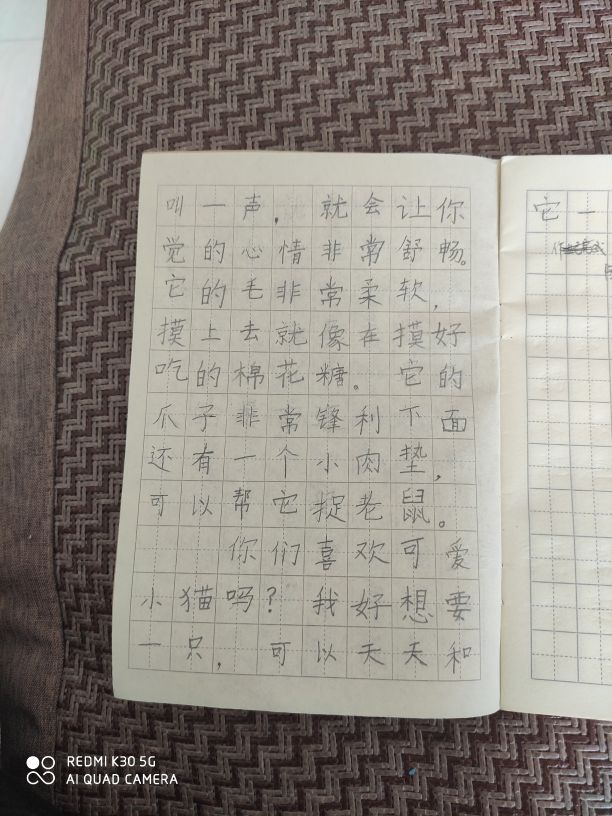 叫一声，就会让你
觉的心情非常舒畅。
它的毛非常柔软，
摸上去就像在摸好
吃的棉花糖。它的
爪子非常锋利下面
还有一个小肉垫，
可以帮它捉老鼠。
你们喜欢可爱
小猫吗？我好想要
一只，可以天天和
它一
REDMI K30 5G
AI QUAD CAMERA